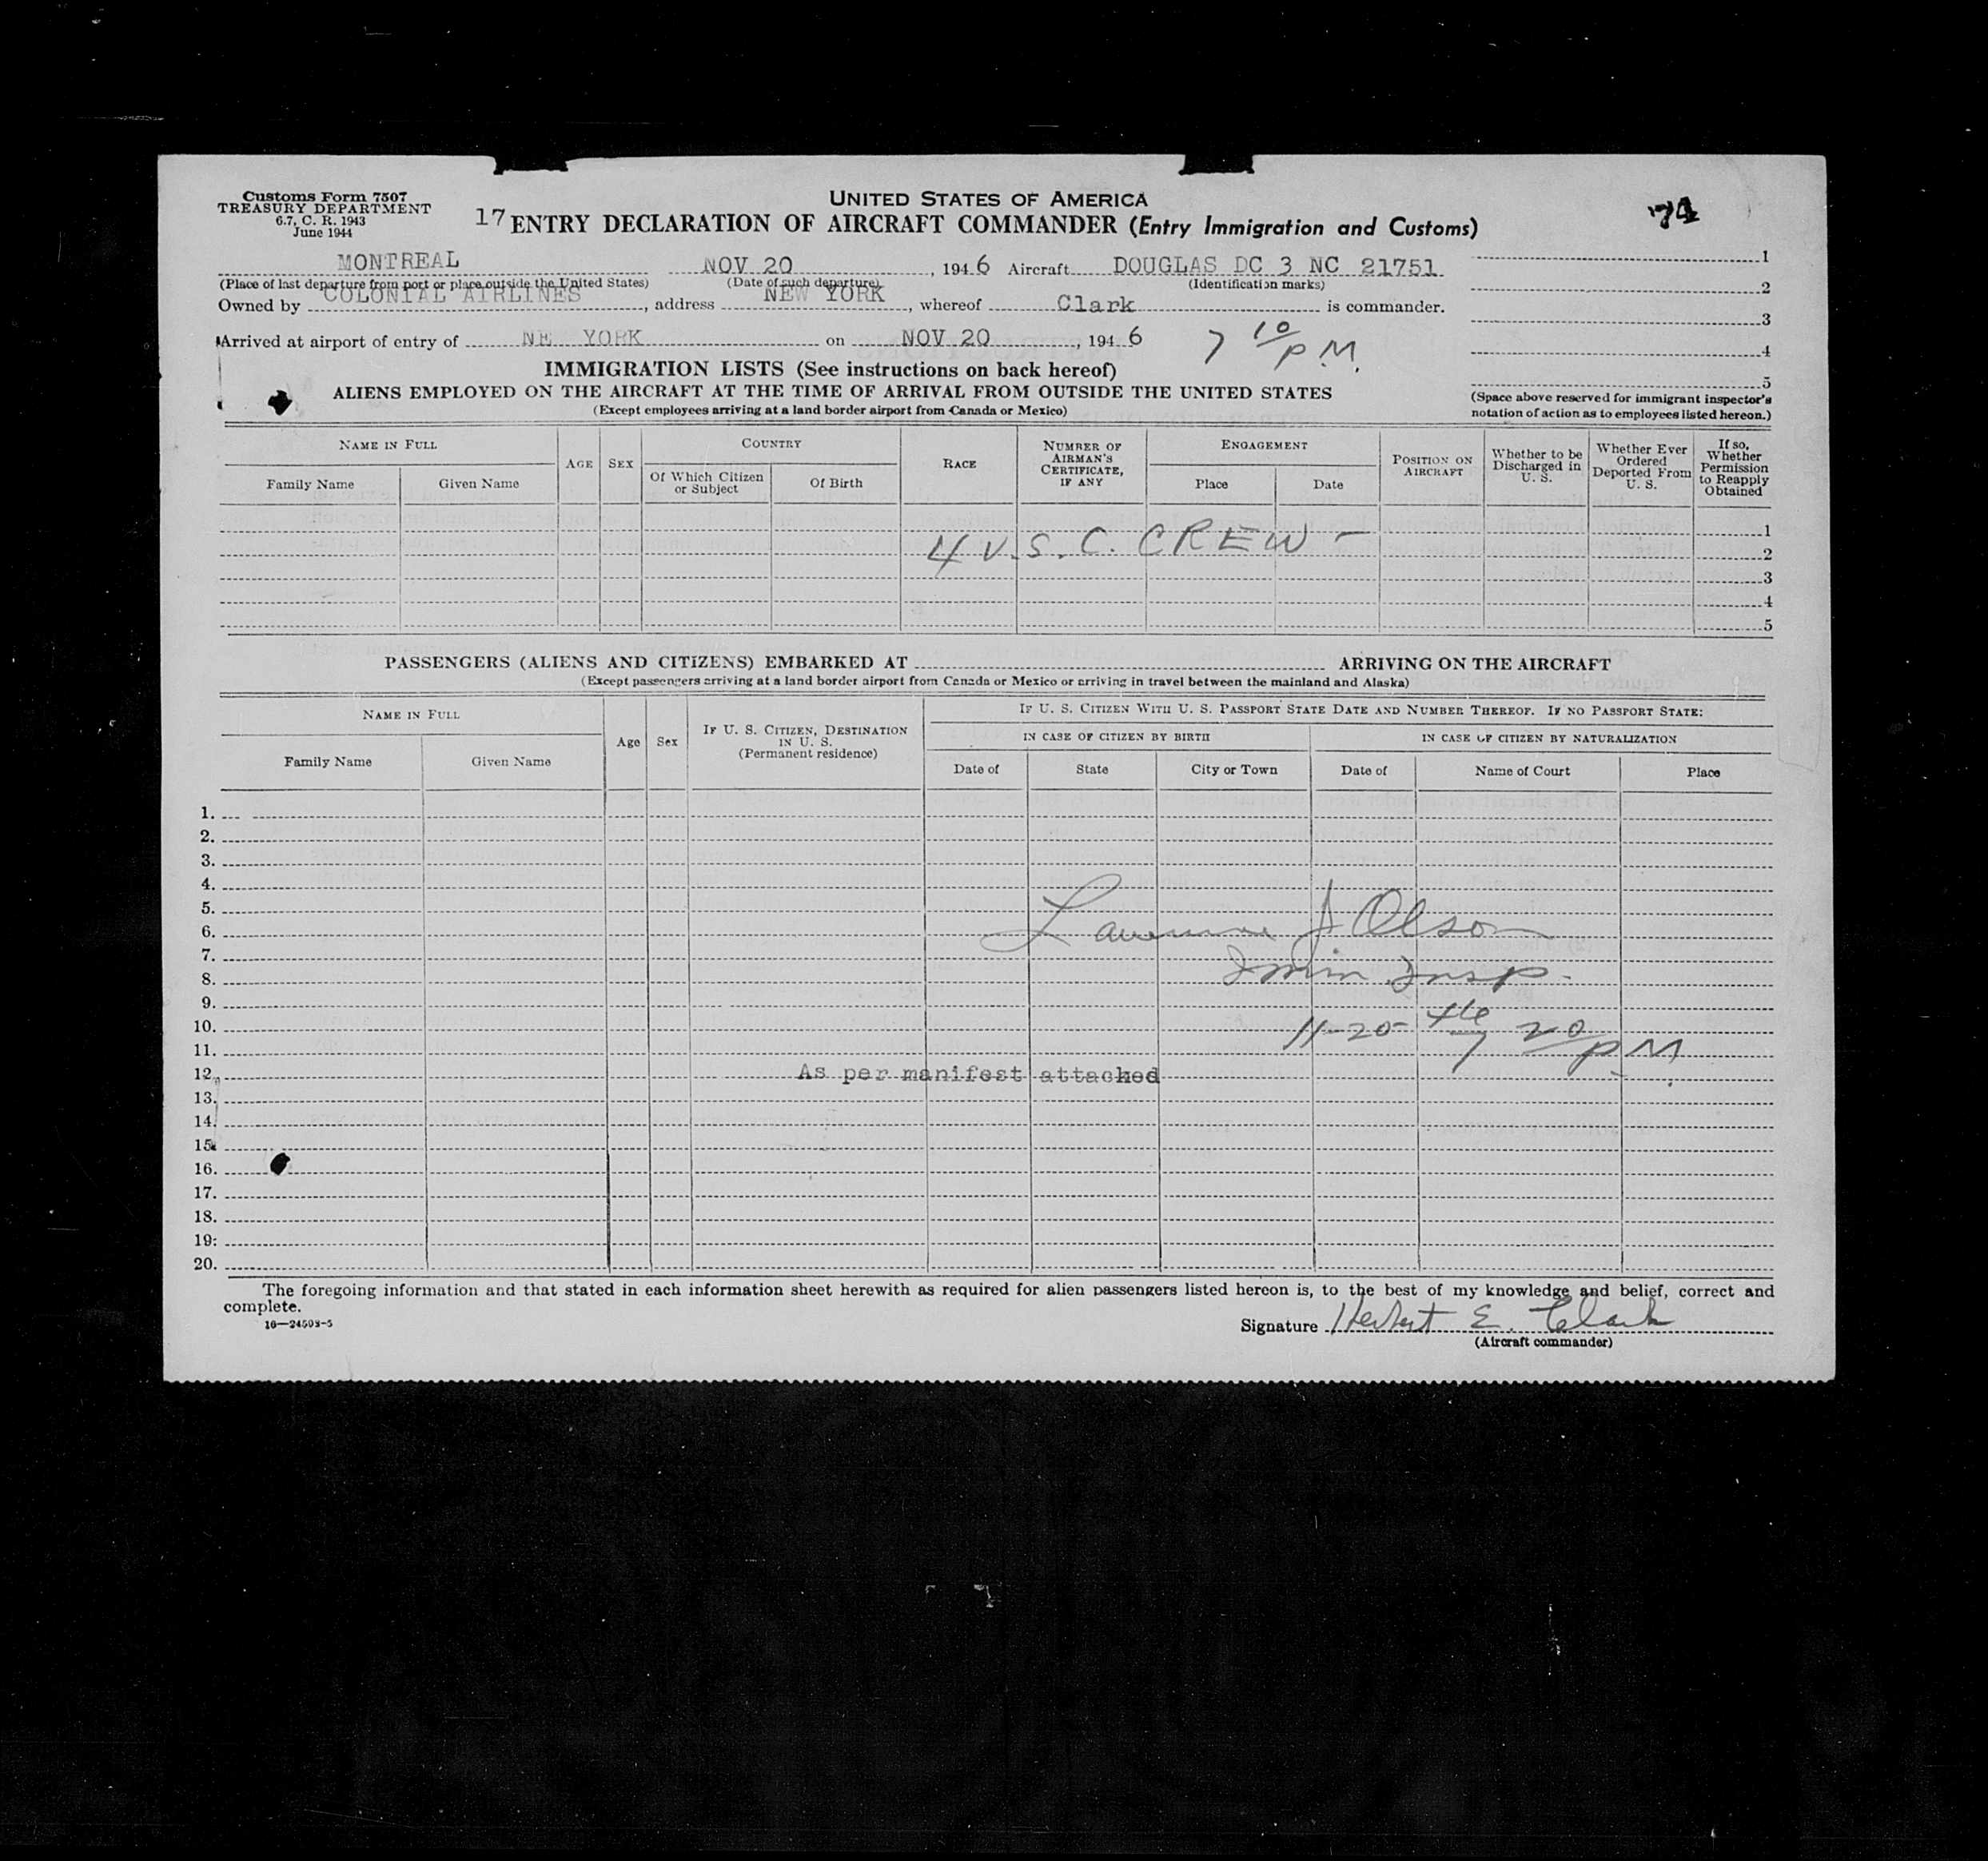 Customs Form 7507
TREASURY DEPARTMENT
6.7, C. R. 1943
June 1944
UNITED STATES OF AMERICA
17 ENTRY DECLARATION OF AIRCRAFT COMMANDER (Entry Immigration and Customs)
74
MONTREAL NOV 20, 1946 Aircraft DOUGLAS DC 3 NC 21751
(Place of last departure from port or place outside the United States) (Date of such departure) (Identification marks)
Owned by COLONIAL AIRLINES, address NEW YORK, whereof Clark is commander.
Arrived at airport of entry of NE YORK on NOV 20, 1946 7 10/PM.
1
2
3
4
5
(Space above reserved for immigrant inspector's
notation of action as to employees listed hereon.)
IMMIGRATION LISTS (See instructions on back hereof)
ALIENS EMPLOYED ON THE AIRCRAFT AT THE TIME OF ARRIVAL FROM OUTSIDE THE UNITED STATES
(Except employees arriving at a land border airport from Canada or Mexico)
NAME IN FULL
Family Name Given Name
AGE
SEX
COUNTRY
Of Which Citizen or Subject
Of Birth
RACE
NUMBER OF AIRMAN'S CERTIFICATE, IF ANY
ENGAGEMENT
Place Date
POSITION ON AIRCRAFT
Whether to be Discharged in U. S.
Whether Ever Ordered Deported From U. S.
If so, Whether Permission to Reapply Obtained
1
4 U.S.C. CREW -
2
3
4
5
PASSENGERS (ALIENS AND CITIZENS) EMBARKED AT ARRIVING ON THE AIRCRAFT
(Except passengers arriving at a land border airport from Canada or Mexico or arriving in travel between the mainland and Alaska)
NAME IN FULL
Family Name Given Name
Age
Sex
IF U. S. CITIZEN, DESTINATION IN U. S.
(Permanent residence)
IF U. S. CITIZEN WITH U. S. PASSPORT STATE DATE AND NUMBER THEREOF. IF NO PASSPORT STATE:
IN CASE OF CITIZEN BY BIRTH IN CASE OF CITIZEN BY NATURALIZATION
Date of State City or Town Date of Name of Court Place
1.
2.
3.
4.
5.
6. Lawrence J Olson
7.
8. Immin Insp.
9.
10. 11-20-46 7 20/PM.
11.
12. As per manifest attached
13.
14.
15.
16.
17.
18.
19.
20.
The foregoing information and that stated in each information sheet herewith as required for alien passengers listed hereon is, to the best of my knowledge and belief, correct and
complete.
16—24593-5
Signature Herbert E. Clark
(Aircraft commander)